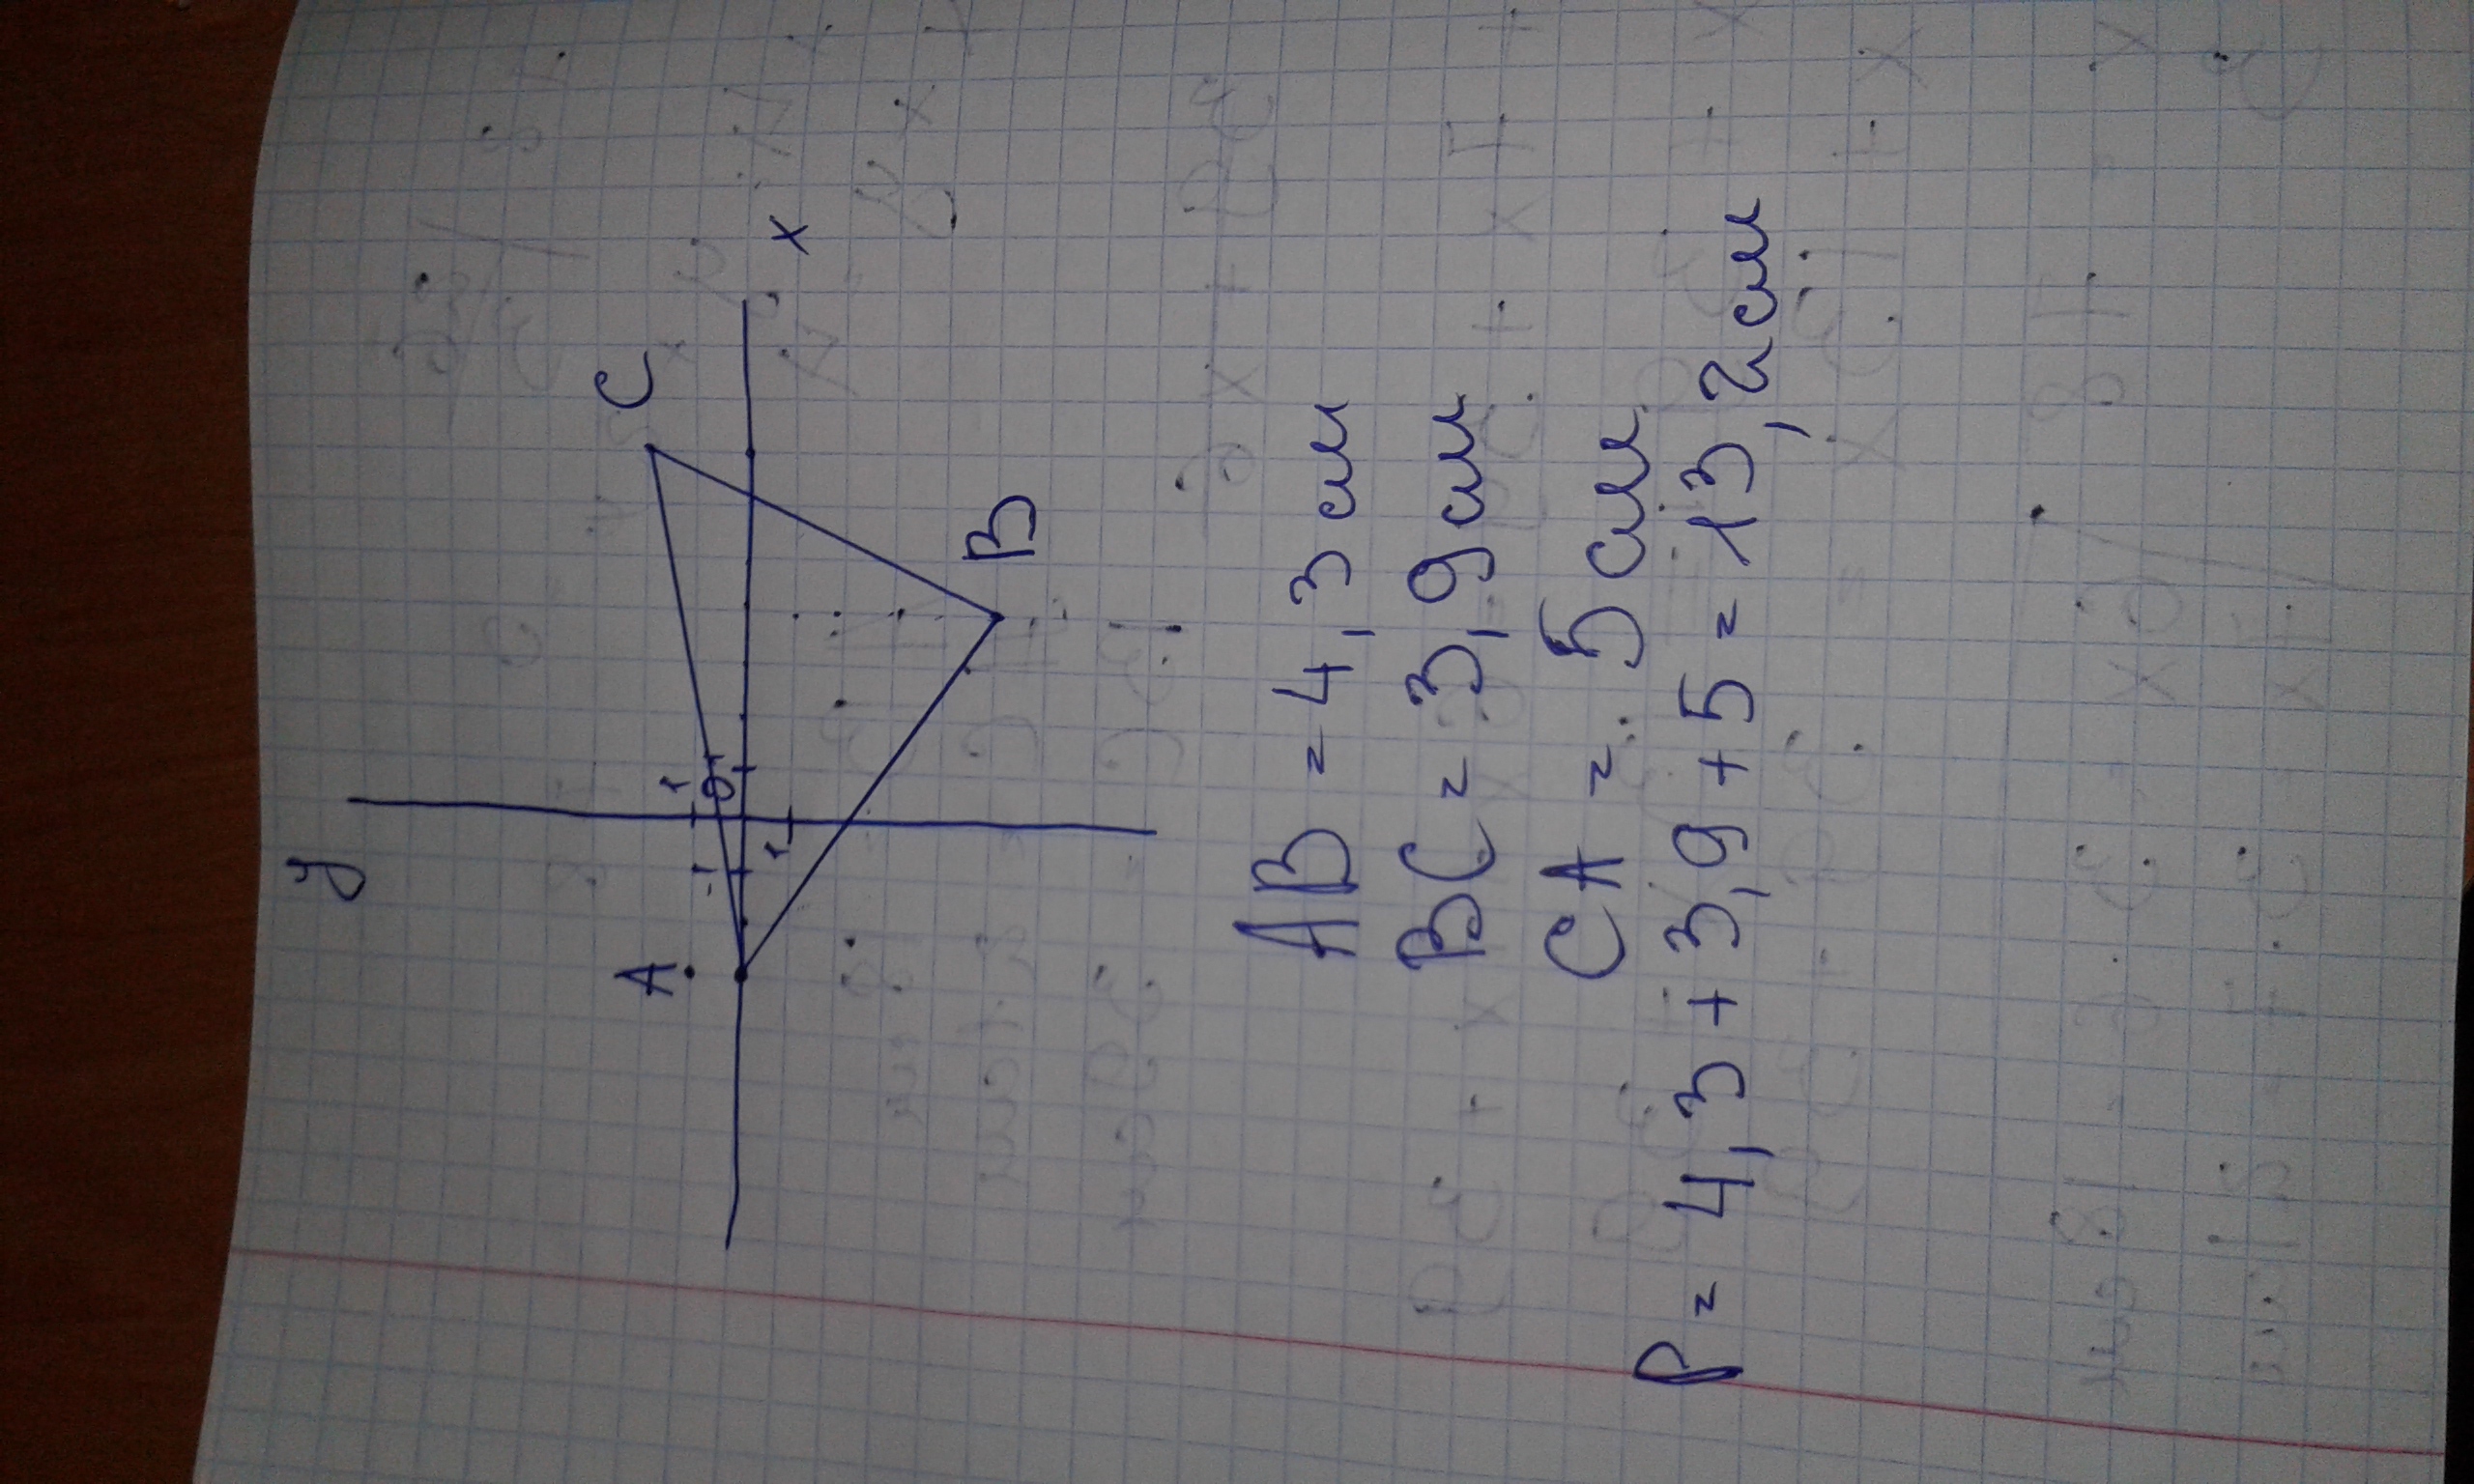 y
A C
-1 1
O 1
1 x
B
AB = 4,3 см
BC = 3,9 см
CA = 5 см
P = 4,3 + 3,9 + 5 = 13,2 см